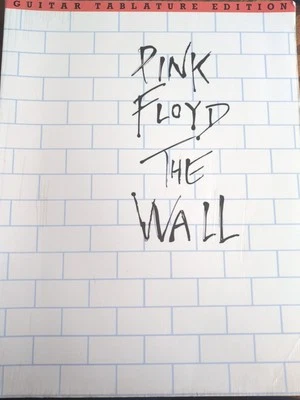 GUITAR TABLATURE EDITION
PINK
FLOYD
THE
WALL